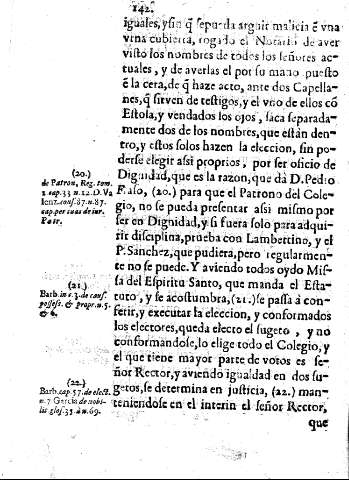 142.
iguales, y sin q̃ se pueda arguir malicia ẽ vna
vrna cubierta, rogado el Notario de aver
visto los nombres de todos los señores ac-
tuales, y de averlas el por su mano puesto
ẽ la cera, de q̃ haze acto, ante dos Capella-
nes, q̃ sirven de testigos, y el vno de ellos cõ
Estola, y vendados los ojos, saca separada-
mente dos de los nombres, que están den-
tro, y estos solos hazen la eleccion, sin po-
derse elegir asi proprios, por ser oficio de
Dignidad, que es la razon, que dà D. Pedro
Fraso, (20.) para que el Patrono del Cole-
gio, no se pueda presentar asi mismo por
ser en Dignidad, y si fuera solo para adqui-
rir disciplina, prueba con Lambertino, y el
P. Sanchez, que pudiera, pero regularmen-
te no se puede. Y aviendo todos oydo Mis-
sa del Espiritu Santo, que manda el Esta-
tuto, y se acostumbra, (21.) se passa à con-
ferir, y executar la eleccion, y conformados
los electores, queda electo el sugeto, y no
conformandose, lo elige todo el Colegio, y
el que tiene mayor parte de votos es se-
ñor Rector, y aviendo igualdad en dos su-
getos, se determina en justicia, (22.) man-
teniendose en el interin el señor Rector,
que
(20.)
de Patron. Reg. tom.
1. cap. 33 n. 22. D. Va
lenz. cons. 87. n. 87.
cap. per tuas de iur.
Patr.
(21.)
Barb. in c. 3. de caus.
posses. & propr. n. 5.
& 6.
(22.)
Barb. cap. 57. de elect.
n. 7 Garcia de nobi-
lis glos. 35. à n. 69.